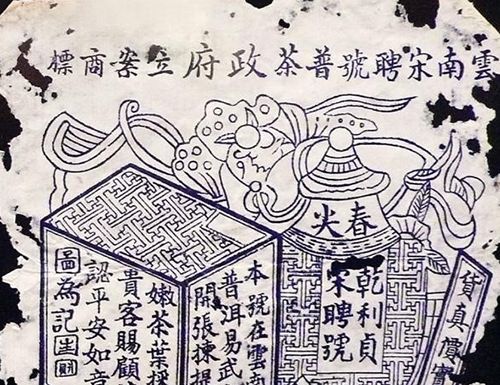 雲南宋聘號普茶政府立案商標
春尖
乾利貞
宋聘號
貨真價
本號在雲南
普洱易武
開張揀提
嫩茶葉採
貴客賜顧
認平安如意
圖為記